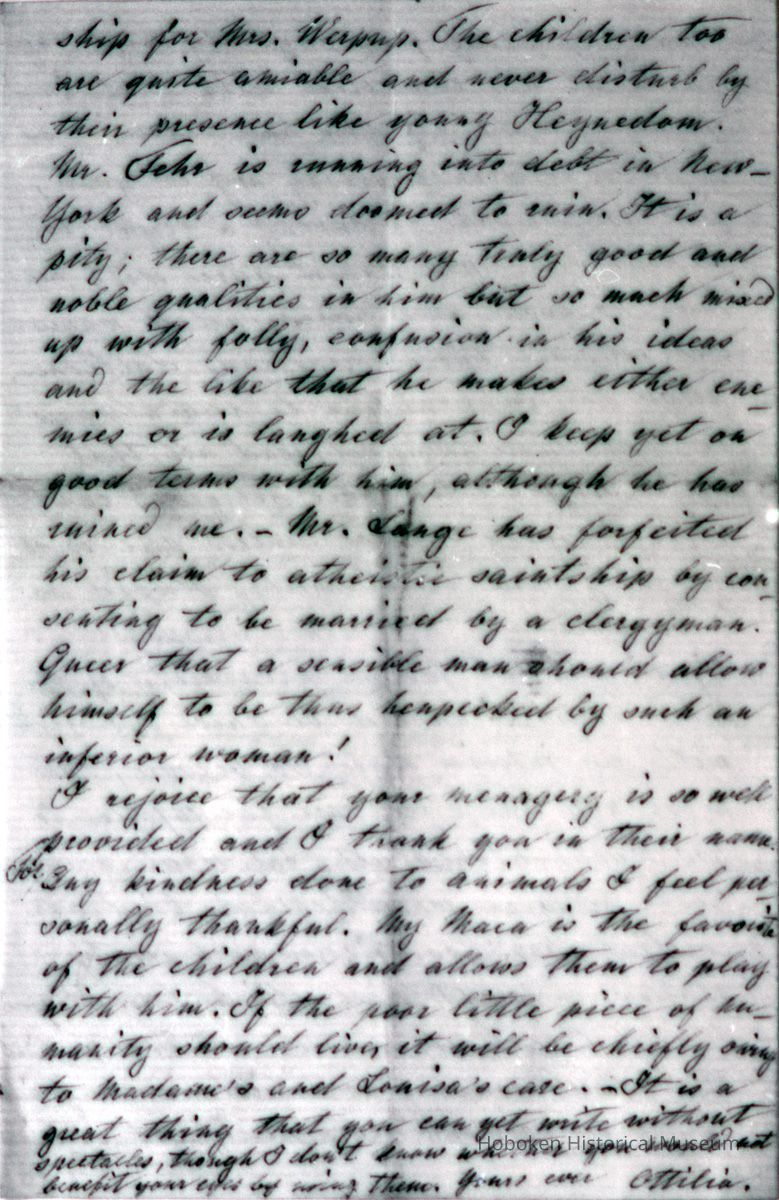 ship for Mrs. Werpup. The children too
are quite amiable and never disturb by
their presence like young Heynedom.
Mr. Fehr is running into debt in New-
York and seems doomed to ruin. It is a
pity; there are so many truly good and
noble qualities in him but so much mixed
up with folly, confusion in his ideas
and the like that he makes either ene-
mies or is laughed at. I keep yet on
good terms with him, although he has
ruined me. - Mr. Lange has forfeited
his claim to atheistic saintship by con-
senting to be married by a clergyman.
Queer that a sensible man should allow
himself to be thus henpecked by such an
inferior woman!
I rejoice that your menagery is so well
provided and I thank you in their name.
For any kindness done to animals I feel per-
sonally thankful. My Maca is the favorite
of the children and allows them to play
with him. If the poor little piece of hu-
manity should live, it will be chiefly owing
to Madame's and Louisa's care. - It is a
great thing that you can yet write without
spectacles, though I don't know not
benefit your eyes by using them. Yours ever Ottilia.
Hoboken Historical Museum